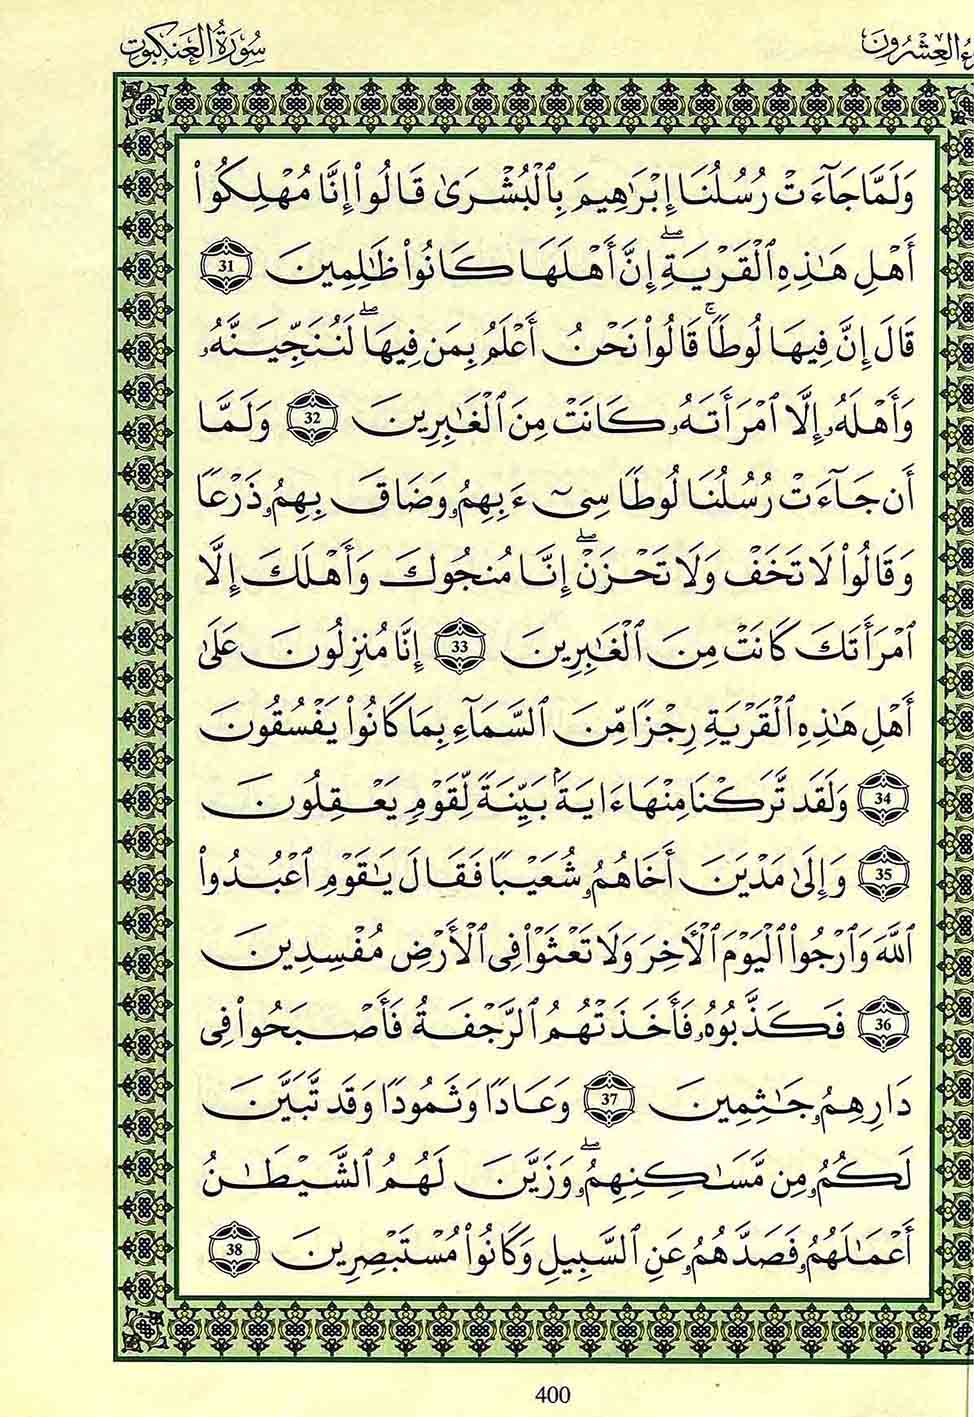 سُورَةُ العَنكَبُوت
ءُ العِشْرُونَ
وَلَمَّا جَآءَتْ رُسُلُنَآ إِبْرَٰهِيمَ بِٱلْبُشْرَىٰ قَالُوٓا۟ إِنَّا مُهْلِكُوٓا۟
أَهْلِ هَٰذِهِ ٱلْقَرْيَةِ ۖ إِنَّ أَهْلَهَا كَانُوا۟ ظَٰلِمِينَ 31
قَالَ إِنَّ فِيهَا لُوطًا ۚ قَالُوا۟ نَحْنُ أَعْلَمُ بِمَن فِيهَا ۖ لَنُنَجِّيَنَّهُۥ
وَأَهْلَهُۥ إِلَّا ٱمْرَأَتَهُۥ كَانَتْ مِنَ ٱلْغَٰبِرِينَ 32 وَلَمَّا
أَن جَآءَتْ رُسُلُنَا لُوطًا سِىٓءَ بِهِمُۥ وَضَاقَ بِهِمُۥ ذَرْعًا
وَقَالُوا۟ لَا تَخَفْ وَلَا تَحْزَنْ ۖ إِنَّا مُنجُوكَ وَأَهْلَكَ إِلَّا
ٱمْرَأَتَكَ كَانَتْ مِنَ ٱلْغَٰبِرِينَ 33 إِنَّا مُنزِلُونَ عَلَىٰ
أَهْلِ هَٰذِهِ ٱلْقَرْيَةِ رِجْزًا مِّنَ ٱلسَّمَآءِ بِمَا كَانُوا۟ يَفْسُقُونَ
34 وَلَقَد تَّرَكْنَا مِنْهَآ ءَايَةًۢ بَيِّنَةً لِّقَوْمٍ يَعْقِلُونَ
35 وَإِلَىٰ مَدْيَنَ أَخَاهُمُۥ شُعَيْبًا فَقَالَ يَٰقَوْمِ ٱعْبُدُوا۟
ٱللَّهَ وَٱرْجُوا۟ ٱلْيَوْمَ ٱلْأَخِرَ وَلَا تَعْثَوْا۟ فِى ٱلْأَرْضِ مُفْسِدِينَ
36 فَكَذَّبُوهُۥ فَأَخَذَتْهُمُ ٱلرَّجْفَةُ فَأَصْبَحُوا۟ فِى
دَارِهِمُۥ جَٰثِمِينَ 37 وَعَادًا وَثَمُودًا وَقَد تَّبَيَّنَ
لَكُمُۥ مِن مَّسَٰكِنِهِمُۥ ۖ وَزَيَّنَ لَهُمُ ٱلشَّيْطَٰنُ
أَعْمَٰلَهُمُۥ فَصَدَّهُمُۥ عَنِ ٱلسَّبِيلِ وَكَانُوا۟ مُسْتَبْصِرِينَ 38
400